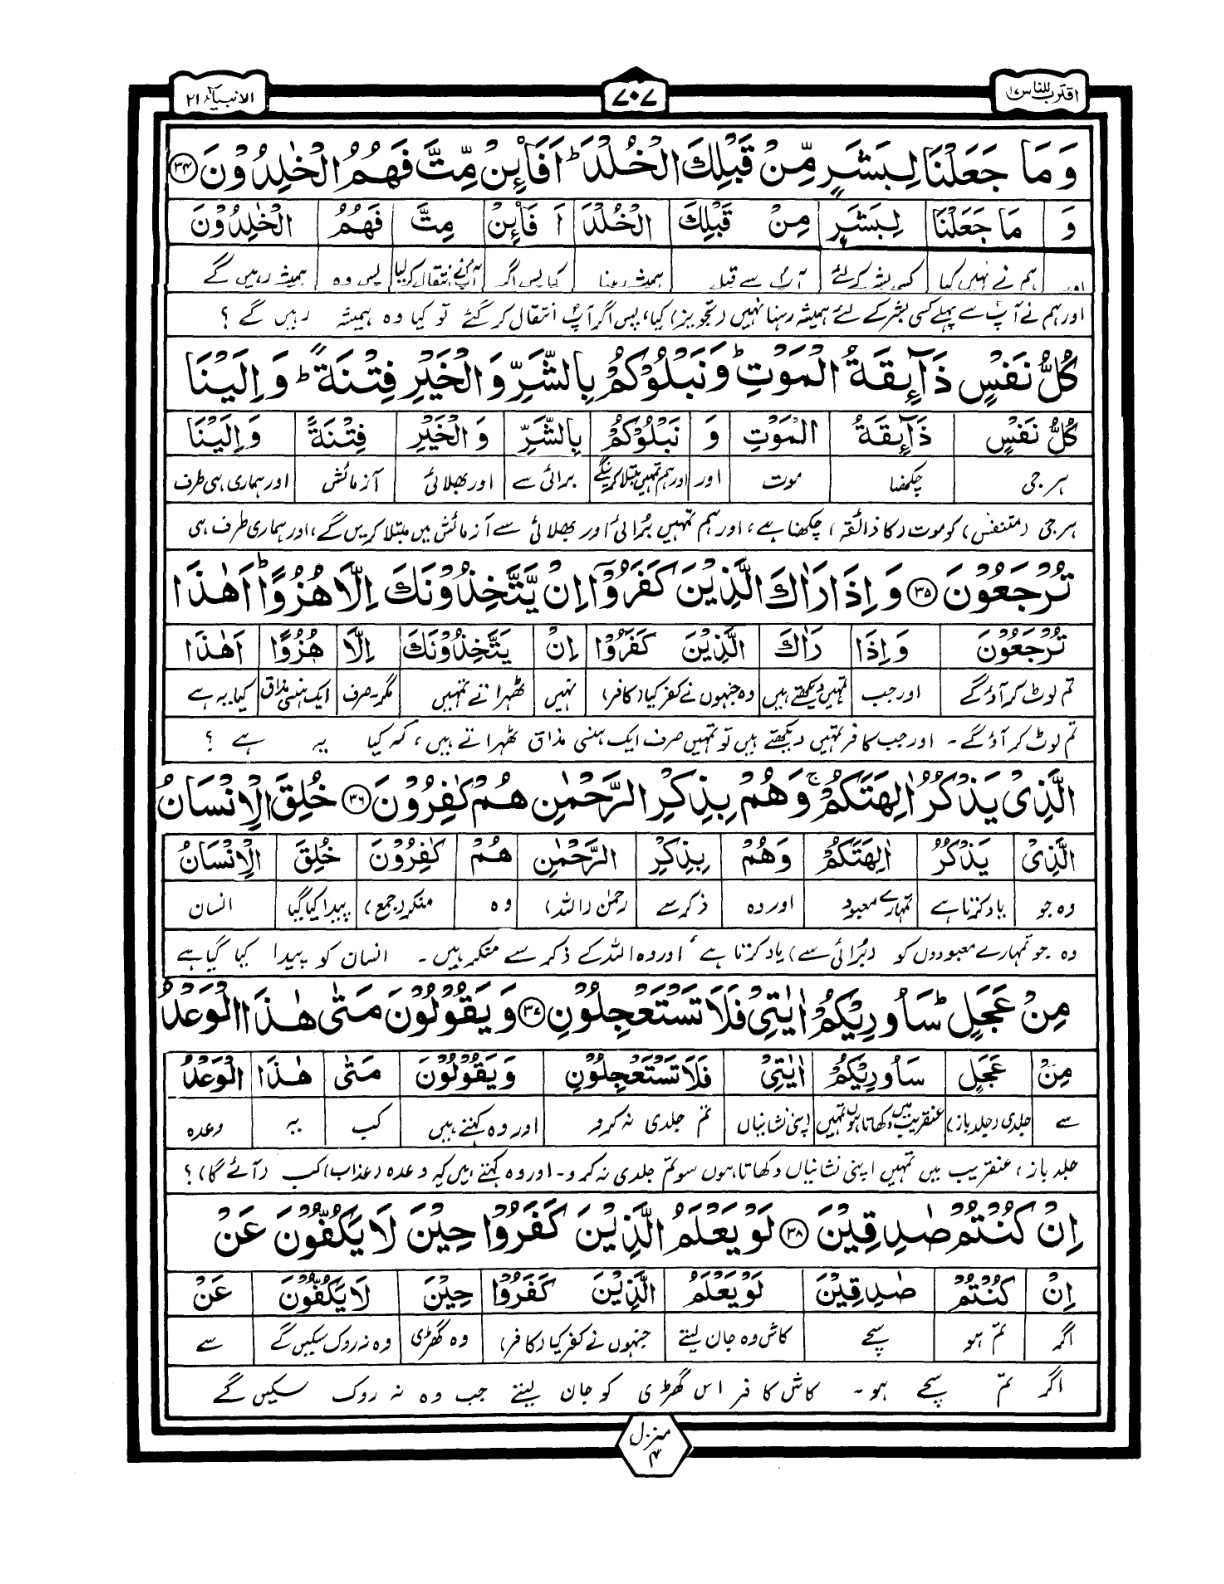 اقترب للناس ۱۷
۷۰۷
الانبیآء ۲۱
وَمَا جَعَلْنَا لِبَشَرٍ مِّنْ قَبْلِكَ الْخُلْدَ ؕ اَفَا۠ئِنْ مِّتَّ فَهُمُ الْخٰلِدُوْنَ ۳۴
وَ مَا جَعَلْنَا لِبَشَرٍ مِنْ قَبْلِكَ الْخُلْدَ اَ فَا۠ئِنْ مِتَّ فَهُمُ الْخٰلِدُوْنَ
اور ہم نے نہیں کیا کسی بشر کے لئے آپ سے قبل ہمیشہ رہنا کیا پس اگر آپ نے انتقال کر لیا پس وہ ہمیشہ رہیں گے
اور ہم نے آپ سے پہلے کسی بشر کے لئے ہمیشہ رہنا نہیں (تجویز) کیا، پس اگر آپ انتقال کر گئے تو کیا وہ ہمیشہ رہیں گے ؟
كُلُّ نَفْسٍ ذَآئِقَةُ الْمَوْتِ ؕ وَنَبْلُوْكُمْ بِالشَّرِّ وَالْخَيْرِ فِتْنَةً ؕ وَاِلَيْنَا
كُلُّ نَفْسٍ ذَآئِقَةُ الْمَوْتِ وَ نَبْلُوْكُمْ بِالشَّرِّ وَالْخَيْرِ فِتْنَةً وَاِلَيْنَا
ہر جی چکھنا موت اور اور ہم تمہیں مبتلا کرینگے برائی سے اور بھلائی آزمائش اور ہماری ہی طرف
ہر جی (متنفس) کو موت (کا ذائقہ) چکھنا ہے، اور ہم تمہیں بُرائی اور بھلائی سے آزمائش میں مبتلا کریں گے، اور ہماری طرف ہی
تُرْجَعُوْنَ ۳۵ وَاِذَا رَاٰكَ الَّذِيْنَ كَفَرُوْٓا اِنْ يَّتَّخِذُوْنَكَ اِلَّا هُزُوًا ؕ اَهٰذَا
تُرْجَعُوْنَ وَاِذَا رَاٰكَ الَّذِيْنَ كَفَرُوْا اِنْ يَتَّخِذُوْنَكَ اِلَّا هُزُوًا اَهٰذَا
تم لوٹ کر آؤ گے اور جب تمہیں دیکھتے ہیں وہ جنہوں نے کفر کیا (کافر) نہیں ٹھہراتے تمہیں مگر۔صرف ایک ہنسی مذاق کیا یہ ہے
تم لوٹ کر آؤ گے۔ اور جب کافر تمہیں دیکھتے ہیں تو تمہیں صرف ایک ہنسی مذاق ٹھہراتے ہیں، کہ کیا یہ ہے ؟
الَّذِيْ يَذْكُرُ اٰلِهَتَكُمْ ۚ وَهُمْ بِذِكْرِ الرَّحْمٰنِ هُمْ كٰفِرُوْنَ ۳۶ خُلِقَ الْاِنْسَانُ
الَّذِيْ يَذْكُرُ اٰلِهَتَكُمْ وَهُمْ بِذِكْرِ الرَّحْمٰنِ هُمْ كٰفِرُوْنَ خُلِقَ الْاِنْسَانُ
وہ جو یاد کرتا ہے تمہارے معبود اور وہ ذکر سے رحمٰن (اللہ) وہ منکر (جمع) پیدا کیا گیا انسان
وہ جو تمہارے معبودوں کو (بُرائی سے) یاد کرتا ہے، اور وہ اللہ کے ذکر سے منکر ہیں۔ انسان کو پیدا کیا گیا ہے
مِنْ عَجَلٍ ؕ سَاُورِيْكُمْ اٰيٰتِيْ فَلَا تَسْتَعْجِلُوْنِ ۳۷ وَيَقُوْلُوْنَ مَتٰى هٰذَا الْوَعْدُ
مِنْ عَجَلٍ سَاُورِيْكُمْ اٰيٰتِيْ فَلَا تَسْتَعْجِلُوْنِ وَيَقُوْلُوْنَ مَتٰى هٰذَا الْوَعْدُ
سے جلدی (جلد باز) عنقریب میں دکھاتا ہوں تمہیں اپنی نشانیاں تم جلدی نہ کرو اور وہ کہتے ہیں کب یہ وعدہ
جلد باز، عنقریب میں تمہیں اپنی نشانیاں دکھاتا ہوں سو تم جلدی نہ کرو۔ اور وہ کہتے ہیں کہ وعدہ (عذاب) کب (آئے گا) ؟
اِنْ كُنْتُمْ صٰدِقِيْنَ ۳۸ لَوْ يَعْلَمُ الَّذِيْنَ كَفَرُوْا حِيْنَ لَا يَكُفُّوْنَ عَنْ
اِنْ كُنْتُمْ صٰدِقِيْنَ لَوْ يَعْلَمُ الَّذِيْنَ كَفَرُوْا حِيْنَ لَا يَكُفُّوْنَ عَنْ
اگر تم ہو سچے کاش وہ جان لیتے جنہوں نے کفر کیا (کافر) وہ گھڑی وہ نہ روک سکیں گے سے
اگر تم سچے ہو۔ کاش کافر اس گھڑی کو جان لیتے جب وہ نہ روک سکیں گے
منزل ۴